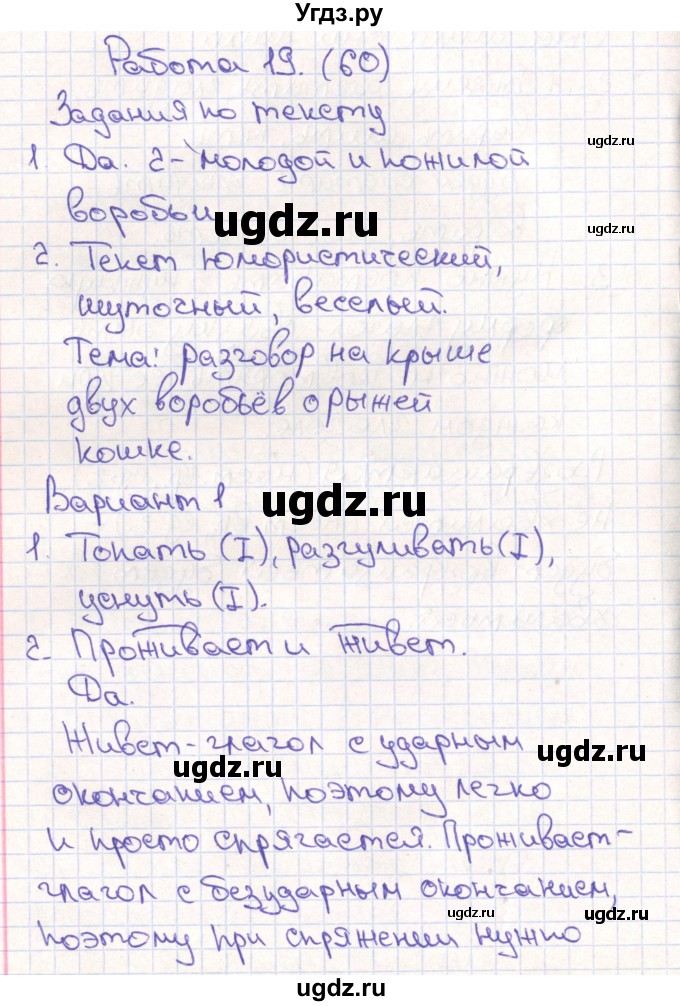 Угдз.ру
Работа 19. (60)
Задания по тексту
ugdz.ru
1. Да. 2 - молодой и пожилой
ugdz.ru
воробьи
ugdz.ru
2. Текст юмористический,
шуточный, веселый.
ugdz.ru
Тема: разговор на крыше
двух воробьёв о рыжей
ugdz.ru
кошке.
Вариант 1
ugdz.ru
1. Топать (I), разгуливать (I),
ugdz.ru
уснуть (I).
2. Проживает и живет.
Да.
Живет - глагол с ударным
ugdz.ru
ugdz.ru
окончанием, поэтому легко
и просто спрягается. Проживает -
глагол с безударным окончанием,
ugdz.ru
поэтому при спряжении нужно
ugdz.ru
ugdz.ru